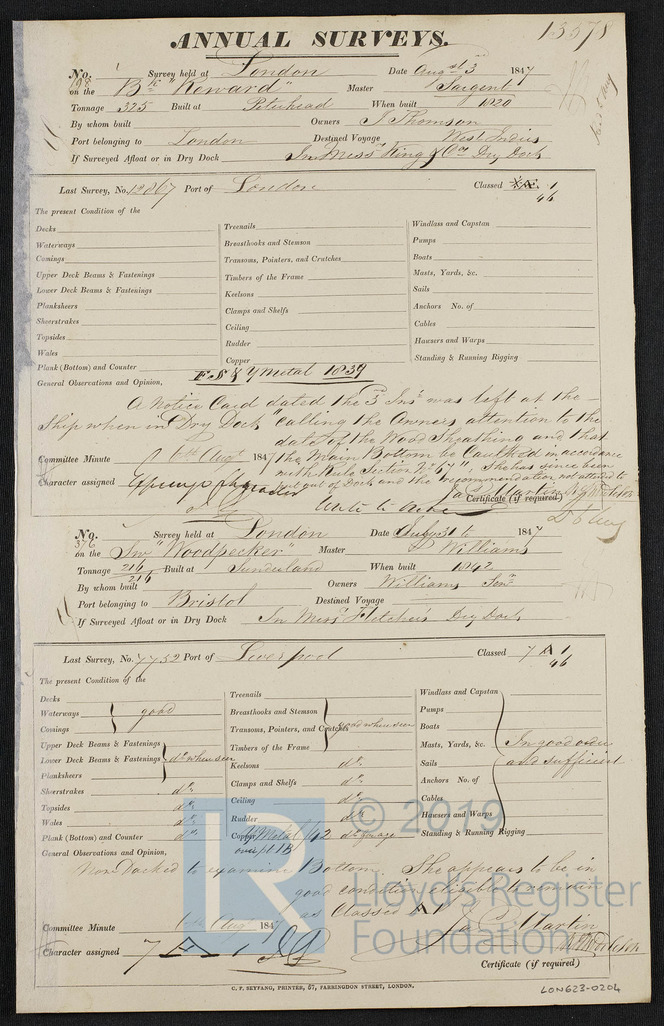 13578
ANNUAL SURVEYS.
No. 1 Survey held at London Date Augst 3 1847
198
on the Bk "Reward" Master Sargent
Tonnage 325 Built at Peterhead When built 1820
By whom built Owners J Thomson
Port belonging to London Destined Voyage West Indies
If Surveyed Afloat or in Dry Dock In Messrs King & Co Dry Dock
Last Survey, No. 12867 Port of London Classed Æ 1
46
The present Condition of the
Decks
Waterways
Comings
Upper Deck Beams & Fastenings
Lower Deck Beams & Fastenings
Planksheers
Sheerstrakes
Topsides
Wales
Plank (Bottom) and Counter
Treenails
Breasthooks and Stemson
Transoms, Pointers, and Crutches
Timbers of the Frame
Keelsons
Clamps and Shelfs
Ceiling
Rudder
Copper F & Y Metal 1839
Windlass and Capstan
Pumps
Boats
Masts, Yards, &c.
Sails
Anchors No. of
Cables
Hawsers and Warps
Standing & Running Rigging
General Observations and Opinion,
A Notice Card dated the 3rd Inst was left at the
Ship when in Dry Dock "calling the Owners attention to the
date of the Wood Sheathing and that
the Main Bottom be Caulked in accordance
with Rule Section No 67". She has since been
put out of Dock and the recommendation not attended to
Committee Minute 6th Augt 1847
Character assigned
Jas Martin
Certificate (if required)
No. Survey held at London Date July 31st 1847
376
on the Snw "Woodpecker" Master Williams
Tonnage 216 Built at Sunderland When built 1842
216
By whom built Owners Williams Senr
Port belonging to Bristol Destined Voyage
If Surveyed Afloat or in Dry Dock In Messrs Fletcher's Dry Dock
Last Survey, No. 7752 Port of Liverpool Classed 7 A 1
46
The present Condition of the
Decks
Waterways good
Comings
Upper Deck Beams & Fastenings
Lower Deck Beams & Fastenings do when seen
Planksheers
Sheerstrakes do
Topsides do
Wales do
Plank (Bottom) and Counter do
Treenails
Breasthooks and Stemson
Transoms, Pointers, and Crutches good where seen
Timbers of the Frame
Keelsons do
Clamps and Shelfs do
Ceiling do
Rudder do
Copper Y Metal /42
Windlass and Capstan
Pumps
Boats
Masts, Yards, &c. In good order
Sails and sufficient
Anchors No. of
Cables
Hawsers and Warps
Standing & Running Rigging
General Observations and Opinion,
Was Docked to examine Bottom. She appears to be in
good condition eligible to remain
as Classed A1
Committee Minute 6th Augt 1847
Jas Martin
Character assigned 7 A 1
Certificate (if required)
C. F. SEYFANG, PRINTER, 57, FARRINGDON STREET, LONDON.
LON623-0204
© 2019
LR
Lloyd's Register
Foundation